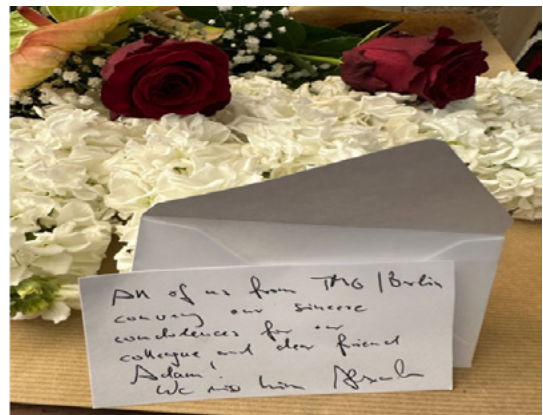 All of us from TMG / Berlin
convey our sincere
condolences for our
colleague and dear friend
Adam!
We miss him